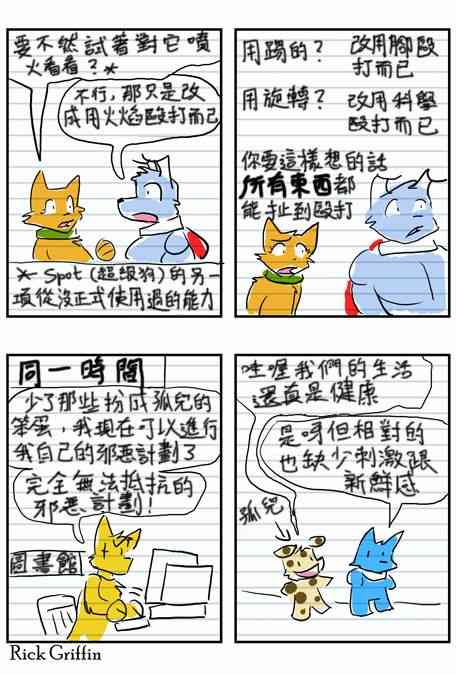 要不然試著對它噴
火看看？*
不行，那只是改
成用火焰毆打而已
* Spot (超級狗) 的另一
項從沒正式使用過的能力
用踢的？ 改用腳毆
打而已
用旋轉？ 改用科學
毆打而已
你要這樣想的話
所有東西都
能扯到毆打
同一時間
少了那些扮成孤兒的
笨蛋，我現在可以進行
我自己的邪惡計劃了
完全無法抵抗的
邪惡計劃！
圖書館
哇喔我們的生活
還真是健康
是呀但相對的
也缺少刺激跟
新鮮感
孤兒
Rick Griffin